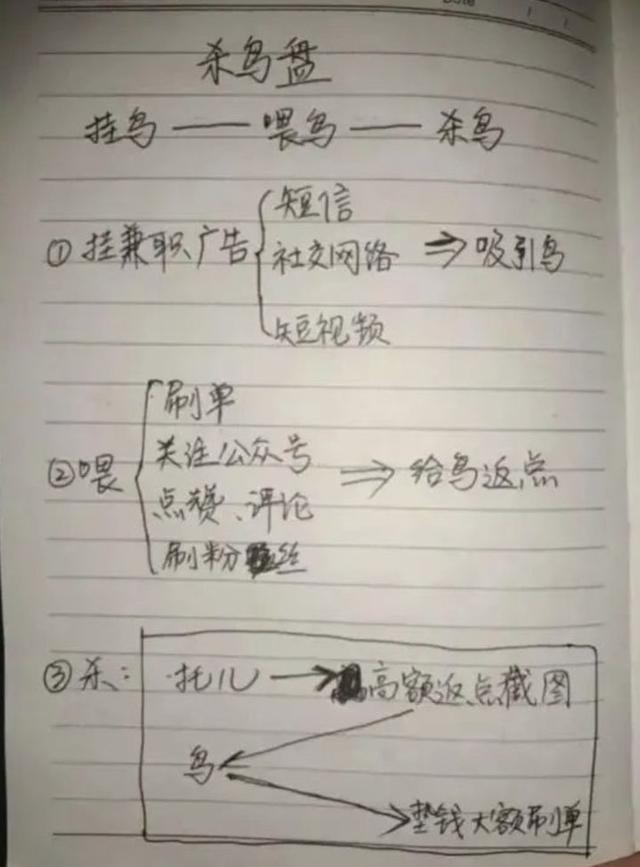 Date
杀鸟盘
挂鸟——喂鸟——杀鸟
①挂兼职广告
短信
社交网络
短视频
⇒吸引鸟
②喂
刷单
关注公众号
点赞、评论
刷粉丝
⇒给鸟返点
③杀:
托儿→高额返点截图
鸟
垫钱大额刷单